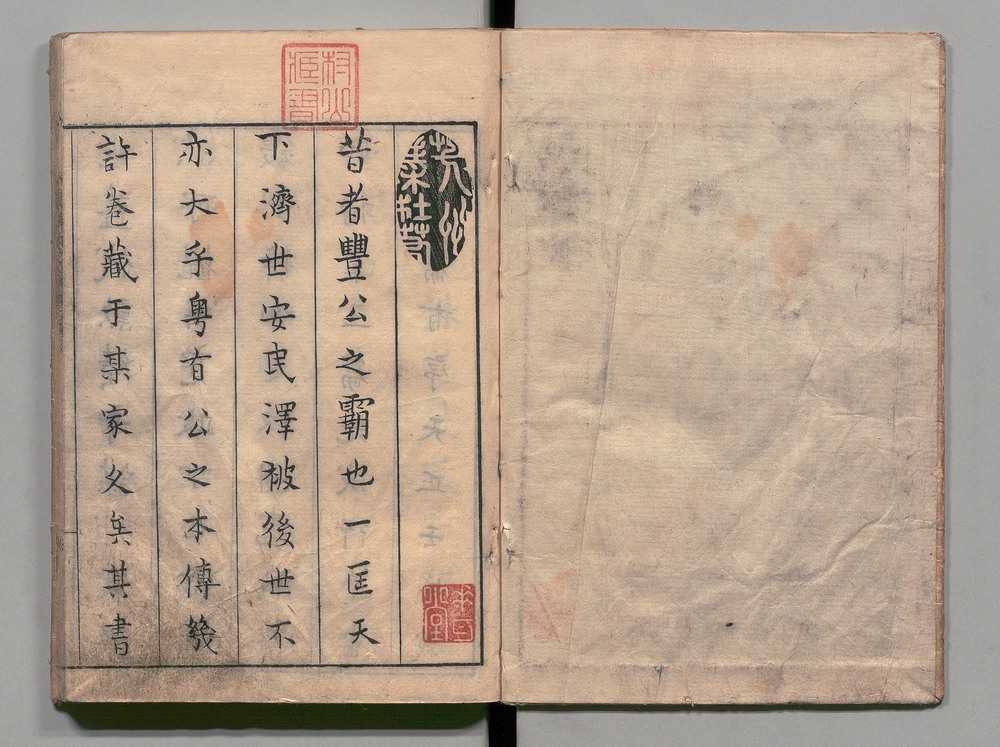 昔者豐公之霸也一匡天
下濟世安民澤被後世不
亦大乎粤有公之本傳幾
許卷藏于某家久矣其書